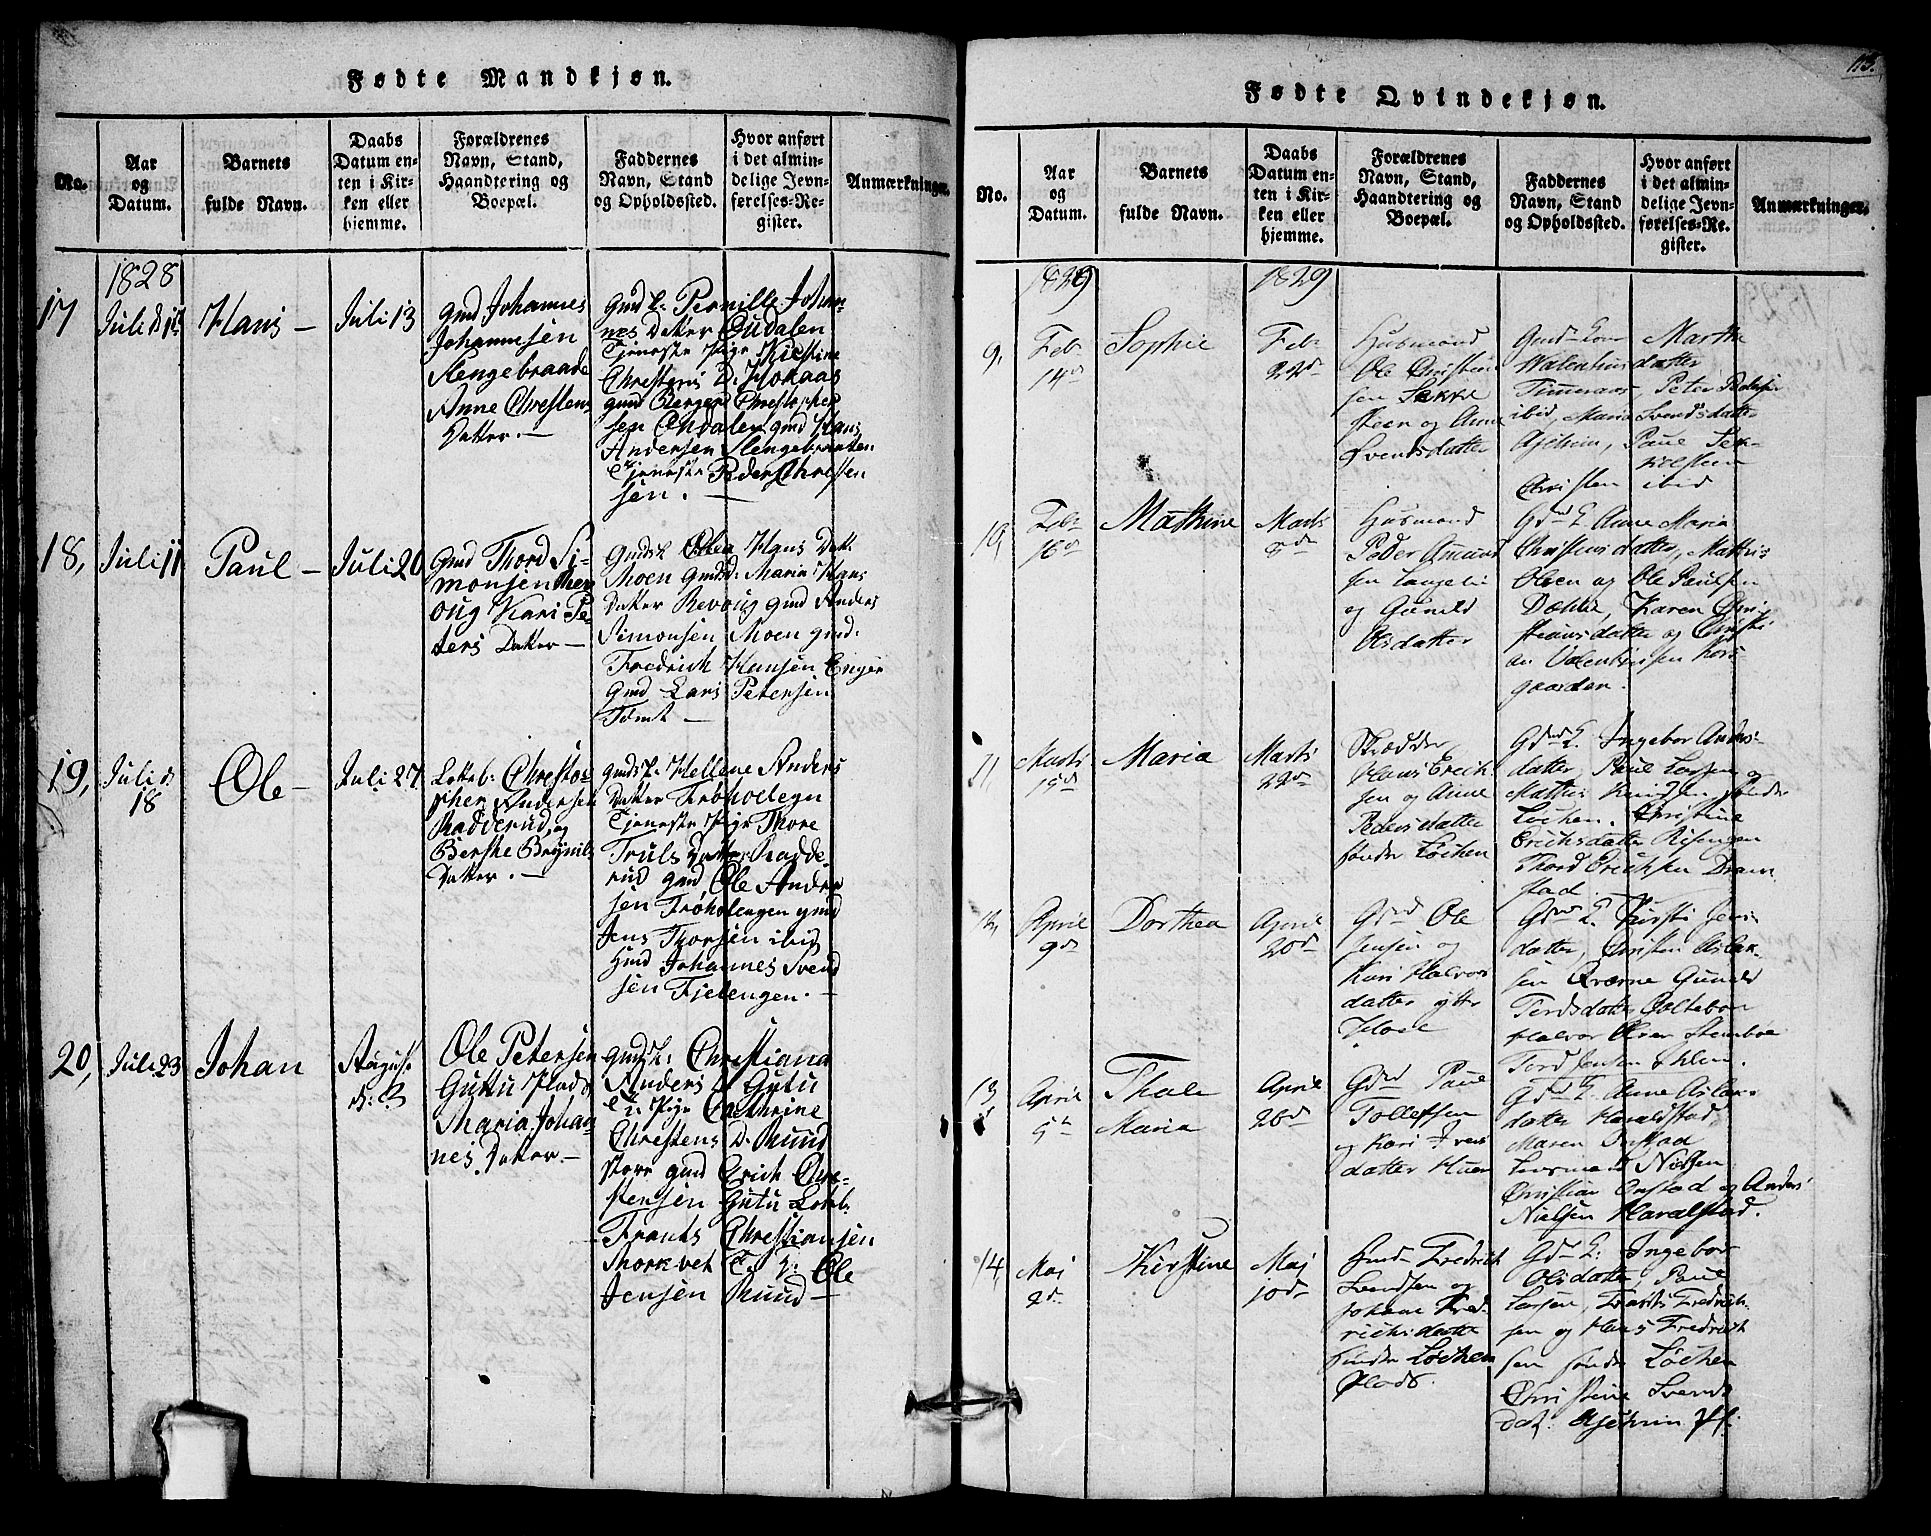 Fødte Mandkjøn.
No.
Aar
og
Datum.
Barnets
fulde Navn.
Daabs
Datum en-
ten i Kir-
ken eller
hjemme.
Forældrenes
Navn, Stand,
Haandtering og
Boepæl.
Faddernes
Navn, Stand
og Opholdssted.
Hvor anført
i det almin-
delige Jevn-
førelses-Re-
gister.
Anmærkninger.
1828
17
Hans –
Juli 13
Gmd Johannes
Johannesen
Slengebraade
Anne Chrestens
Datter. –
Gmd k: Pernille Johan-
nes Datter Eudalen
Tjeneste Pige Kiestine
Chrestens D: Hokaas
Gmd Berger Chrestopher
sen Eudalen gmd Hans
Andersen Slengebraaten
Tjeneste Peder Chresten
sen. –
18,
Juli 11
Paul –
Juli 20
Gmd Thord Si-
monsen
oug Kari Pe-
ters Datter –
Gmds k: Olea Hans Datt.
Moen Gmdsd: Maria Hans
Datter Revoug Gmd Anders
Simonsen Moen gmd:
Fredrich Hansen Enger
Gmd Lars Petersen
Tomt –
19,
Juli d
18
Ole –
Juli 27
Chrestop
pher Andersen
Radderud, og
Berthe Brynils
Datter. –
Gmds k: Hellene Anders
Datter Froholtegn
Tjeneste Pige Thore
Truls Datter Radde-
rud gmd, Ole Ander
sen Froholengen gmd
Jens Thorsen ibid
Hmd Johannes Svend
sen Fjelengen. –
20,
Juli 23
Johan
August
d: 3
Ole Petersen
Guttu Plads
Maria Johan-
nes Datter –
Gmds k: Christiana
Anders D Gutu
Pige Cathrine
Chrestens D. Ruud
Store gmd Erich Chre-
stensen Gutu
Frants Christiansen
Thorkvet Ole
Jensen Ruud –
113.
Fødte Qvindekjøn.
No.
Aar
og
Datum.
Barnets
fulde Navn.
Daabs
Datum en-
ten i Kir-
ken eller
hjemme.
Forældrenes
Navn, Stand,
Haandtering og
Boepæl.
Faddernes
Navn, Stand
og Opholdssted.
Hvor anført
i det almin-
delige Jevn-
førelses-Re-
gister.
Anmærkninger.
1829
1829
9,
Feb
14d
Sophie
Feb
22d
Husmand
Ole Christen
sen Sekke
steen og Anne
Svendsdatter
Gmd Marthe
Valentinsdatter
Timeraas, Peter Pedersen
ibid, Maria Svendsdatter
Asjerim, Paul
Christen ibid
Feb
16d
Mathine
Marts
8d
Husmand
Peder Amund
sen Langeli
og Gunild
Olsdatter
Gmd E. Anne Maria
Christensdatter, Mathis
Olsen og Ole Paulsen
Dæhlie, Karen Chri-
stiansdatter og Christi
an Valentinsen Kors
gaarden.
11
Marts
15d
Maria
Marts
22d
Skrædder
Hans Erich
sen og Anne
Pedersdatter
søndre Løchen
Gdmd E. Ingebor Anders
datter, Paul Larsen og
Mathis Knudsen søndre
Løchen. Christine
Erichsdatter Risengen
Thord Erichsen Dram
stad.
12,
April
9d
Dorthea
April
20d
Gdmd Ole
Jensen og
Kari Halvors
datter ytre
Hoel
Gdmd E. Kirsti Jens
datter, Christen Aslak-
sen Qværne Gunild
Tordsdatter Coltebor
Halvor Stenboe
Tord Jensen
13
April
5t
Thale
Maria
April
26d
Gdmd Paul
Tollefsen
og Kari
datter Huer
Gdmd E. Anne Aslaks
datter Haraldstad
Maren Onstad
Nilsen
Christian Onstad og Anders
Nielsen Haralstad.
14,
Maj
2d.
Kirstine
Maj
10d
Hmd Fredrich
Svendsen og
Johane Fred
richsdatter
søndre Løchen
plads.
Gdmd E: Ingebor
Olsdatter, Paul
Larsen, Frants Fredrich-
sen og Hans Fredrich
sen søndre Løchen
Christine Svends
dat: Asjerim Pl: